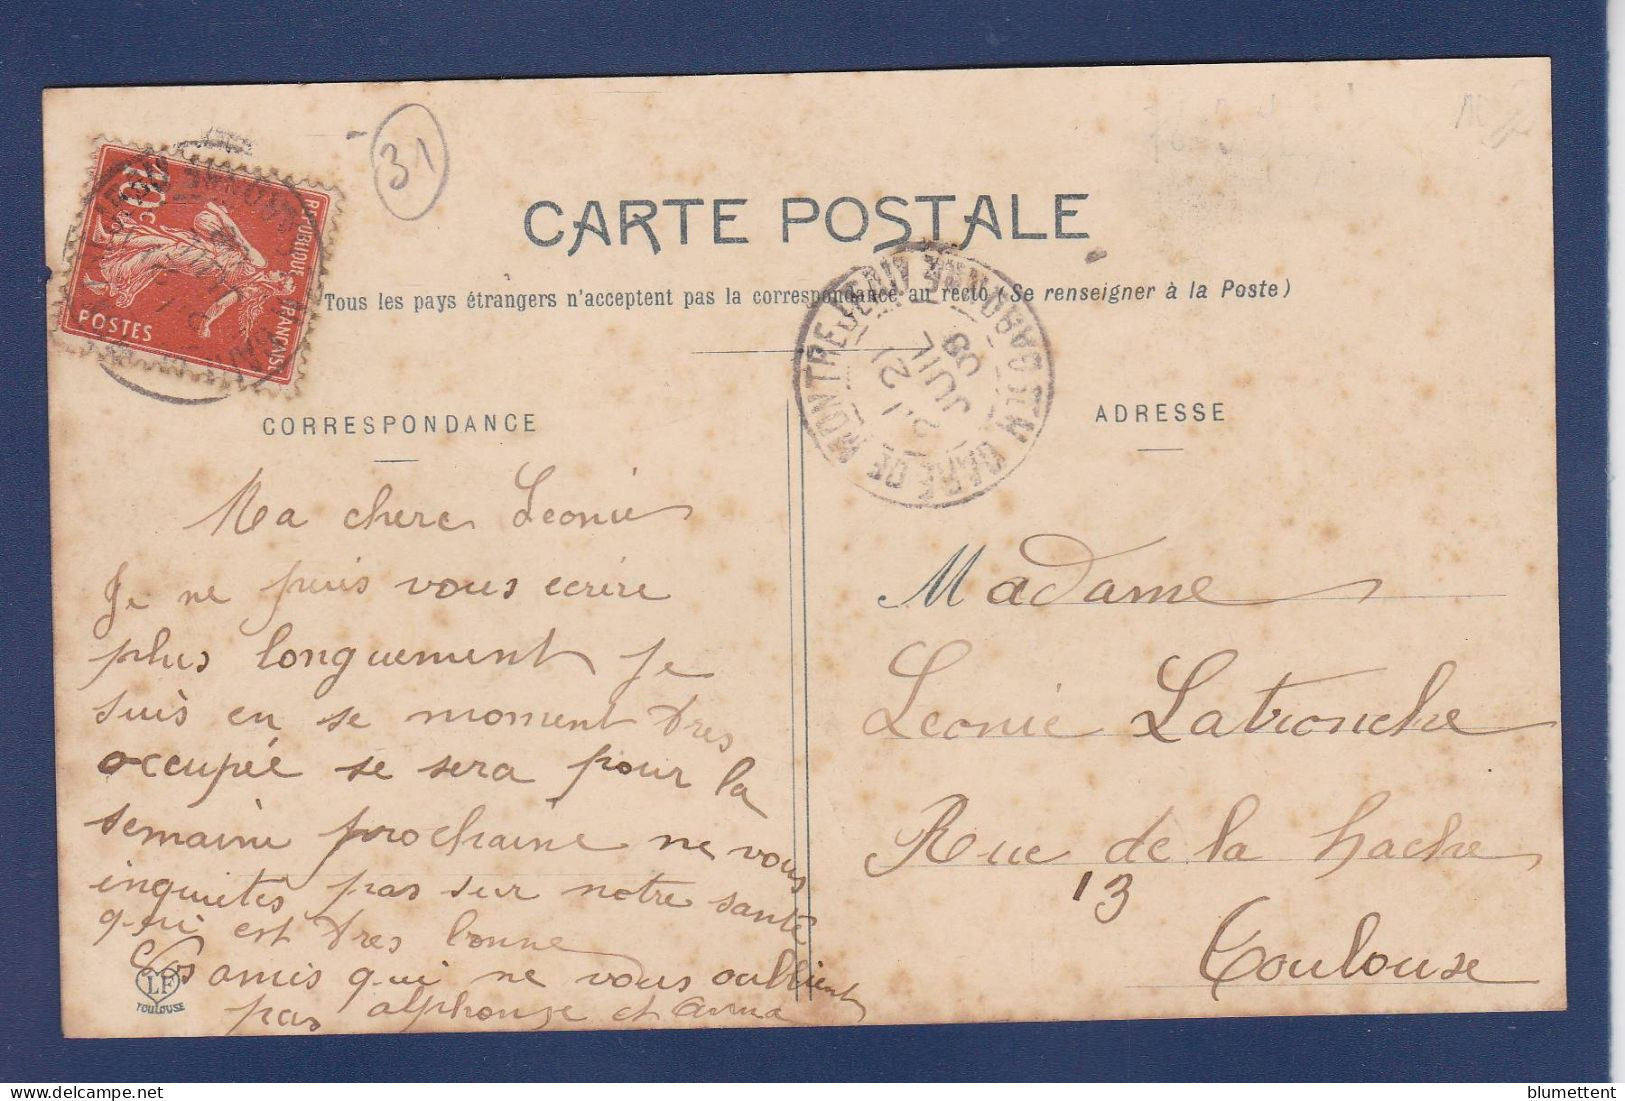 31
CARTE POSTALE
Tous les pays étrangers n'acceptent pas la correspondance au recto (Se renseigner à la Poste)
10c
REPUBLIQUE FRANÇAISE
POSTES
GARE DE MONTREJEAU HTE GARONNE
21
JUIL
09
CORRESPONDANCE
ADRESSE
Ma chere Leonie
Je ne puis vous ecrire
plus longuement je
suis en se moment tres
occupée se sera pour la
semaine prochaine ne vous
inquietes pas sur notre santé
qui est tres bonne
Vos amis qui ne vous oublient
pas alphonse et anna
LF
TOULOUSE
Madame
Leonie Latronche
Rue de la hache
13
Toulouse
blumettent